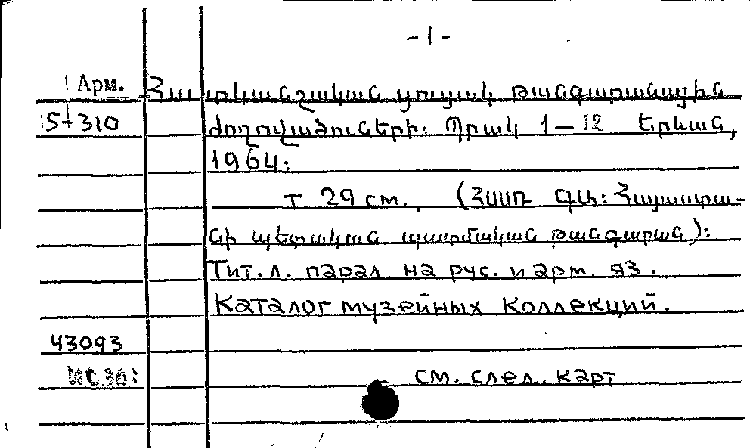 - 1 -
Арм. Հատկանշական ցուցակ թանգարանային
5+310 ժողովածուների: Պրակ 1-12 Երևան,
1964:
т 29 см. (ՀՍՍՌ ԳԱ: Հայաստա-
նի պետական պատմական թանգարան):
Тит. л. парал на рус. и арм. яз.
Каталог музейных коллекций.
43093
см. след. карт